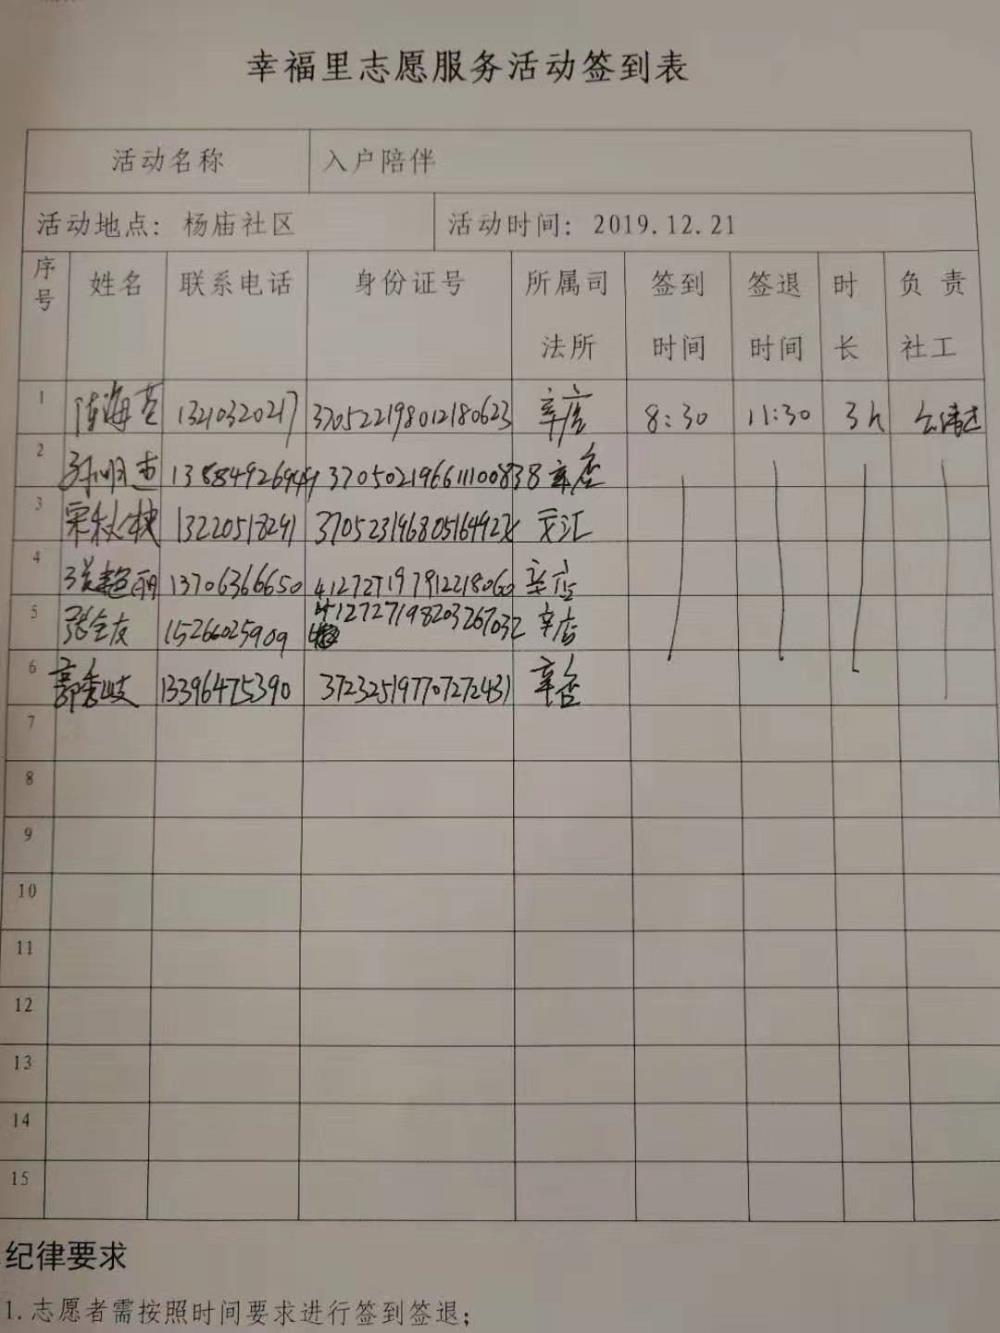 幸福里志愿服务活动签到表
活动名称 入户陪伴
活动地点：杨庙社区 活动时间：2019.12.21
序号 姓名 联系电话 身份证号 所属司法所 签到时间 签退时间 时长 负责社工
1 陈海莹 13210320217 370522198012180623 辛店 8:30 11:30 3h
2 孙明 370502196611100838 辛店
3 13220518291 37052319680516492X 文汇
4 张超丽 13706366650 412727197912218060 辛店
5 张全友 15266025909 412727198203267032 辛店
6 郭秀岐 13396475390 372325197707272431 辛店
7
8
9
10
11
12
13
14
15
纪律要求
1.志愿者需按照时间要求进行签到签退；